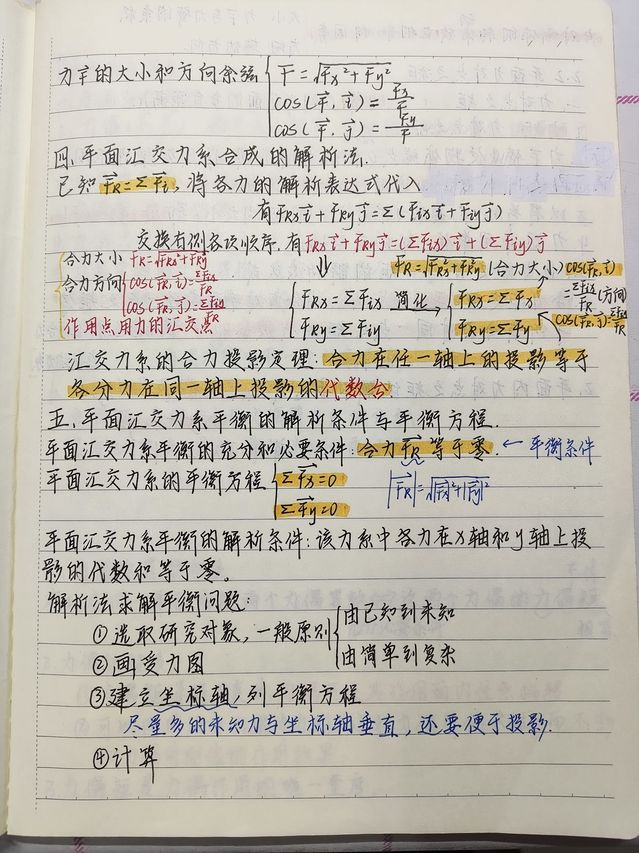 力F的大小和方向余弦 { F = √Fx² + Fy²
cos(F, i) = Fx/F
cos(F, j) = Fy/F
四、平面汇交力系合成的解析法.
已知 FR = ΣFi, 将各力的解析表达式代入
有 FRx i + FRy j = Σ(Fix i + Fiy j)
交换右侧各项顺序. 有 FRx i + FRy j = (ΣFix) i + (ΣFiy) j
合力大小 FR = √FRx² + FRy²
合力方向 { cos(FR, i) = ΣFix/FR
cos(FR, j) = ΣFiy/FR
作用点用力的汇交点
⇓
{ FRx = ΣFix
FRy = ΣFiy
简化 →
FR = √FRx² + FRy² (合力大小)
{ FRx = ΣFx
FRy = ΣFy
cos(FR, i) = ΣFix/FR (方向)
cos(FR, j) = ΣFiy/FR
汇交力系的合力投影定理: 合力在任一轴上的投影等于
各分力在同一轴上投影的代数合
五、平面汇交力系平衡的解析条件与平衡方程.
平面汇交力系平衡的充分和必要条件: 合力FR等于零. ← 平衡条件
平面汇交力系的平衡方程 { ΣFx = 0
ΣFy = 0
|FR| = √|Fx|² + |Fy|²
平面汇交力系平衡的解析条件: 该力系中各力在x轴和y轴上投
影的代数和等于零。
解析法求解平衡问题:
① 选取研究对象, 一般原则 { 由已知到未知
由简单到复杂
② 画受力图
③ 建立坐标轴, 列平衡方程
尽量多的未知力与坐标轴垂直, 还要便于投影.
④ 计算